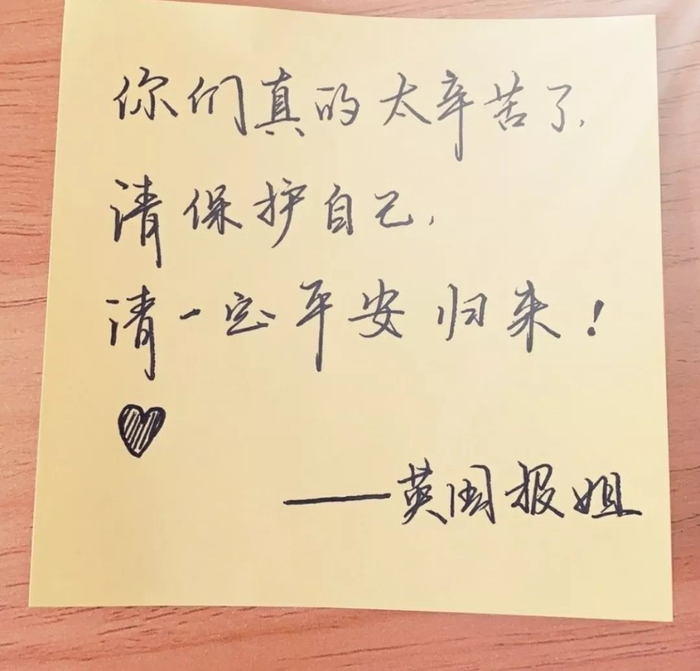 你们真的太辛苦了，
请保护自己，
请一定平安归来！
——英国报姐